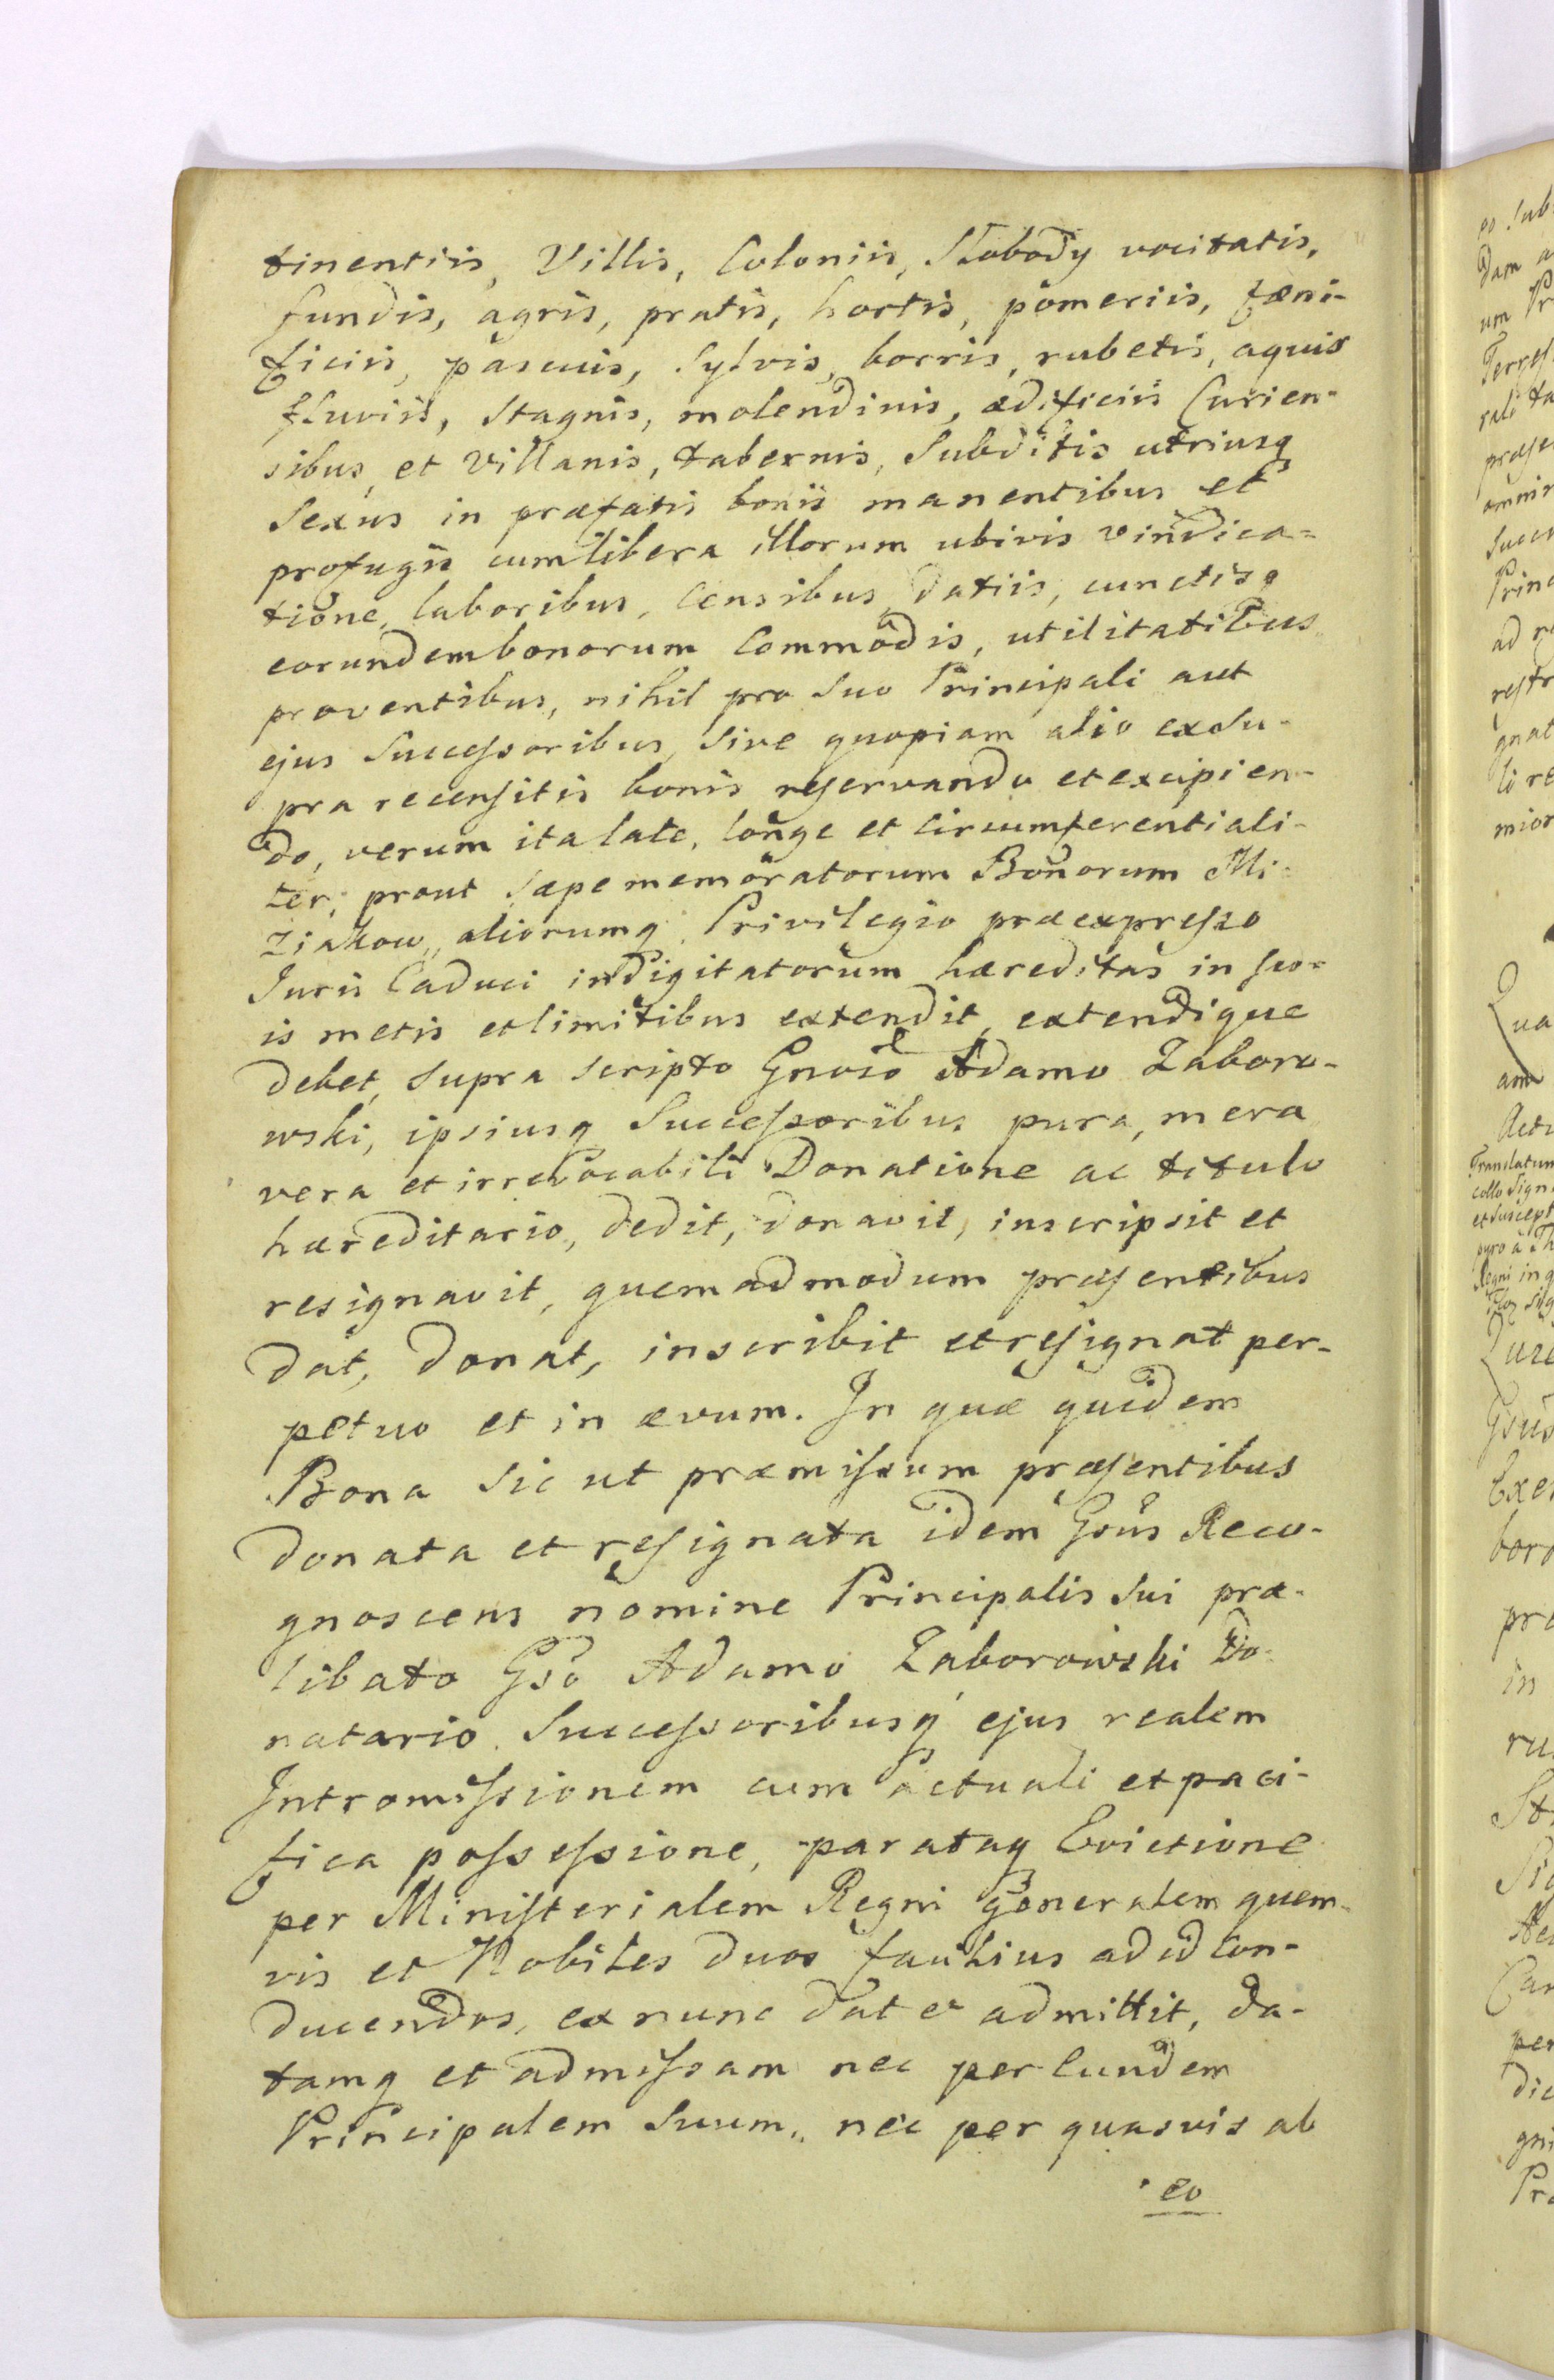 tinentiis, Villis, Coloniis, Słobody vocitatis,
fundis, agris, pratis, hortis, pomeriis, fæni-
ficiis, pascuis, Sylvis, borris, rubetis, aquis
fluviis, Stagnis, molendinis, ædificiis Curien-
sibus, et Villanis, tabernis, Subditis utriusq
Sexus in præfatis bonis manentibus et
profugis cum libera illorum ubivis vindica=
tione, laboribus, Censibus, datiis, cunctisq
eorundem bonorum Commodis, utilitatibus
proventibus, nihil pro Suo Principali aut
ejus Successoribus, Sive quopiam alio ex Su-
pra recensitis bonis reservando et excipien-
do, verum ita late, longe et Circumferentiali-
ter, prout Sæpe memoratorum Bonorum Mi-
ziakow, aliorumq Privilegio præexpresso
Juris Caduci indigitatorum hæreditas in suo-
is metis et limitibus extendit, extendique
debet, Supra Scripto Gnoso Adamo Zaboro-
wski, ipsiusq Successoribus pura, mera
vera et irrevocabili Donatione ac titulo
hæreditario, dedit, donavit, inscripsit et
resignavit, quemadmodum præsentibus
dat, donat, inscribit et resignat per-
petuo et in ævum. In quæ quidem
Bona Sic ut præmissum præsentibus
donata et resignata idem Gsus Reco-
gnoscens nomine Principalis Sui præ-
libato Gso Adamo Zaborowski Do-
natario Successoribusq ejus realem
Intromissionem cum actuali et paci-
fica possessione, parataq Evictione
per Ministerialem Regni Generalem quem-
vis et Nobiles duos faulius ad id Con-
ducendos, ex nunc dat et admittit, da-
tamq et admissam nec per Eundem
Principalem Suum, nec per quasvis ab
eo